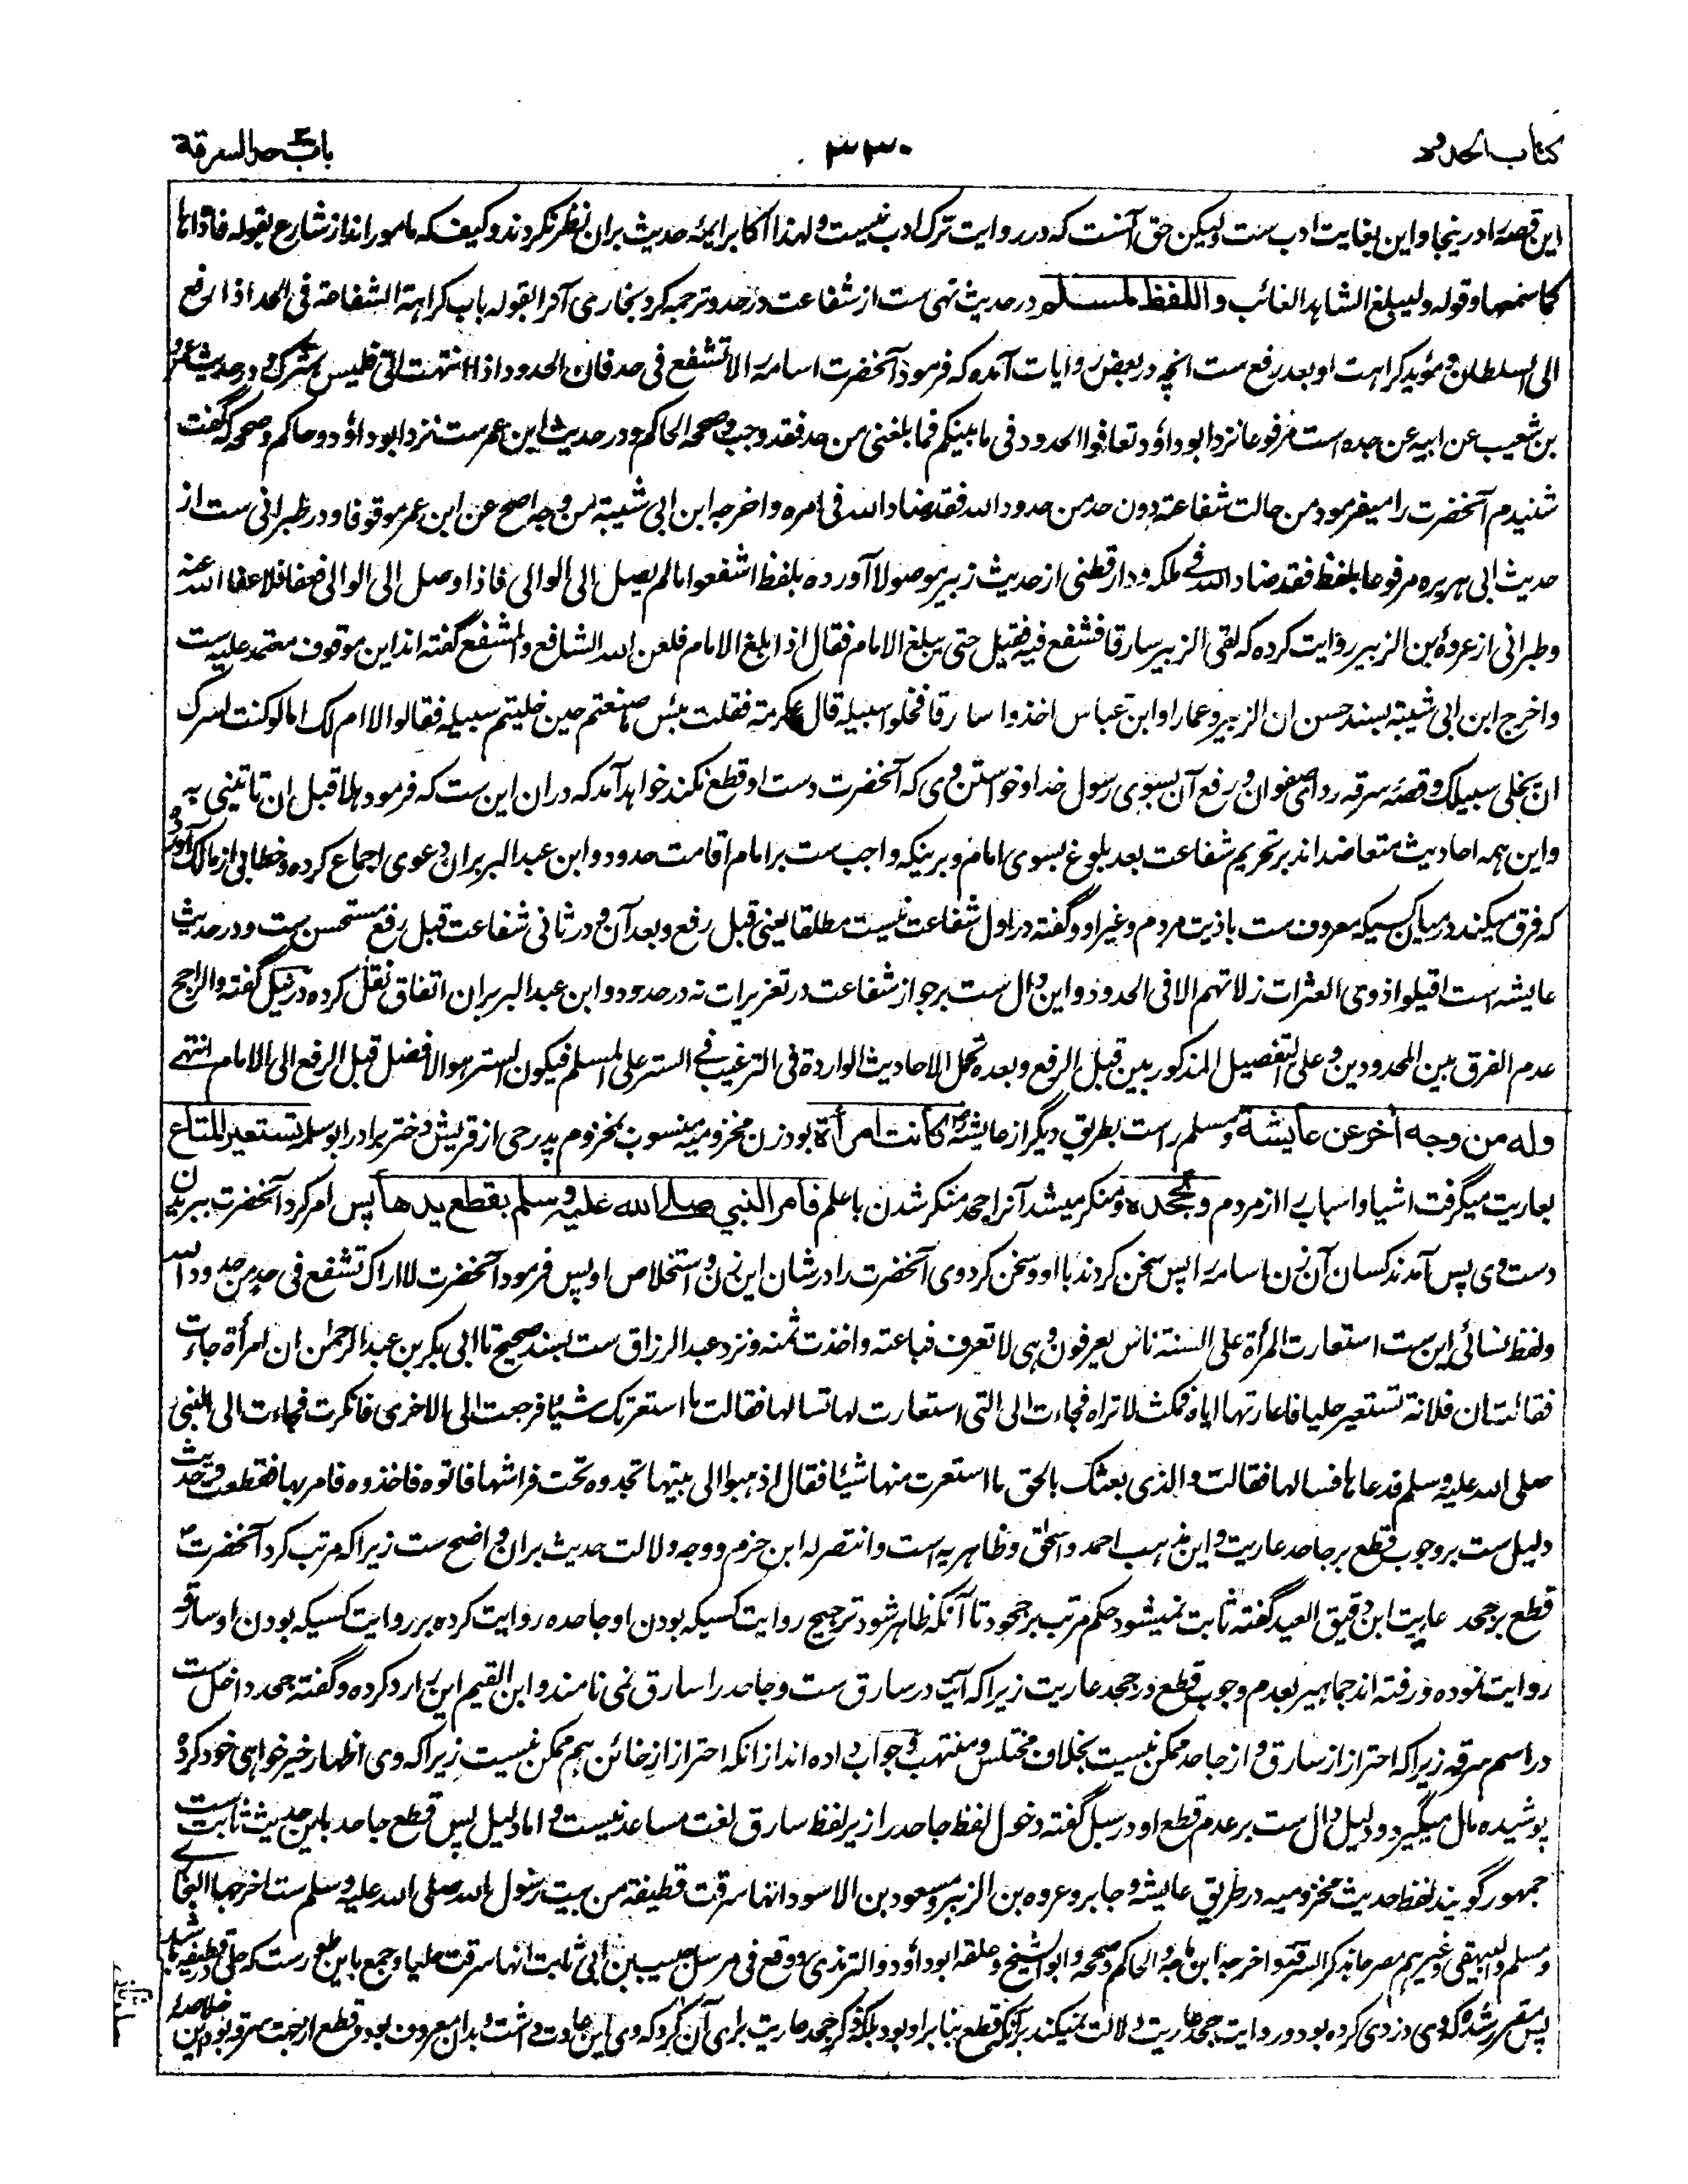 کتاب الحدود
۳۳۰
باب حد السرقة
این قصه را درینجا و این بغایت ادب ست ولیکن حق آنست که در روایت ترک ادب نیست ولهذا اکابر ایمه حدیث بران نظر نکردند و کیف که مامور اند از شارع بقوله فاداها
کما سمعها وقوله ولیبلغ الشاهد الغائب واللفظ لمسلم در حدیث نهی ست از شفاعت در حد و ترجمه کرد بخاری آنرا بقوله باب کراهة الشفاعة فی الحد اذا رفع
الی السلطان و مؤید کراهت او بعد رفع ست انچه در بعض روایات آمده که فرمود آنحضرت اسامه را لا تشفع فی حد فان الحدود اذا انتهت الی فلیس بمترک و در حدیث عمرو
بن شعیب عن ابیه عن جده است مرفوعا نزد ابوداؤد تعافوا الحدود فی ما بینکم فما بلغنی من حد فقد وجب و صححه الحاکم و در حدیث ابن عمر ست نزد ابوداؤد و حاکم و صححه که گفت
شنیدم آنحضرت را میفرمود من حالت شفاعته دون حد من حدود الله فقد ضاد الله فی امره و اخرجه ابن ابی شیبة من وجه اصح عن ابن عمر موقوفا و در طبرانی ست از
حدیث ابی هریره مرفوعا بلفظ فقد ضاد الله فی ملکه و دارقطنی از حدیث زبیر موصولا آورده بلفظ اشفعوا ما لم یصل الی الوالی فاذا وصل الی الوالی فعفا فلا عفا الله عنه
وطبرانی از عروۀ بن الزبیر روایت کرده که لقی الزبیر سارقا فشفع فیه فقیل حتی یبلغ الامام فقال اذا بلغ الامام فلعن الله الشافع والمشفع گفته اند این موقوف معتمد علیه ست
واخرج ابن ابی شیبة بسند حسن ان الزبیر وعمارا وابن عباس اخذوا سارقا فخلوا سبیله قال عکرمة فقلت بئس ما صنعتم حین خلیتم سبیله فقالوا لا ام لک اما لو کنت لسرک
ان یخلی سبیلک وقصۀ سرقه ردای صفوان و رفع آن بسوی رسول خدا و خواستن وی که آنحضرت دست او قطع نکند خواهد آمد که دران این ست که فرمود هلا قبل ان تاتینی به
واین همه احادیث متعاضد اند بر تحریم شفاعت بعد بلوغ بسوی امام و برینکه واجب ست بر امام اقامت حدود و ابن عبد البر بران دعوی اجماع کرده و خطابی از مالک آورده
که فرق میکند در میان کسیکه معروف ست باذیت مردم وغیر او و گفته در اول شفاعت نیست مطلقا یعنی قبل رفع و بعد آن و در ثانی شفاعت قبل رفع مستحسن ست و در حدیث
عایشه است اقیلوا ذوی العثرات زلاتهم الا فی الحدود و این دال ست بر جواز شفاعت در تعزیرات نه در حدود و ابن عبد البر بران اتفاق نقل کرده در نیل گفته والراجح
عدم الفرق بین المحدودین وعلی التفصیل المذکور بین قبل الرفع وبعده تحمل الاحادیث الواردة فی الترغیب فی الستر علی المسلم فیکون الستر هو الافضل قبل الرفع الی الامام انتهی
وله من وجه اخر عن عایشة و مسلم راست بطریق دیگر از عایشه رض کانت امرأة بود زن مخزومیه منسوب بمخزوم پدر حی از قریش دختر برادر ابو سلمه تستعیر المتاع
بعاریت میگرفت اشیا و اسباب را از مردم وتجحده و منکر میشد آنرا جحد منکر شدن با علم فامر النبي صلی الله علیه وسلم بقطع یدها پس امر کرد آنحضرت ببریدن
دست وی پس آمدند کسان آن زن اسامه را پس سخن کردند با او و سخن کرد وی آنحضرت را در شان این زن و استخلاص او پس فرمود آنحضرت لا اراک تشفع فی حد من حدود الله
ولفظ نسائی این ست استعارت المرأة علی السنة ناس یعرفون وهی لا تعرف فباعته واخذت ثمنه ونزد عبد الرزاق ست بسند صحیح تا ابی بکر بن عبد الرحمن ان امرأة جاءت
فقالت ان فلانة تستعیر حلیا فاعارتها ایاه فمکثت لا تراه فجاءت الی التی استعارت لها تسالها فقالت ما استعرتک شیئا فرجعت الی الاخری فانکرت فجاءت الی النبی
صلی الله علیه وسلم فدعاها فسالها فقالت والذی بعثک بالحق ما استعرت منها شیئا فقال اذهبوا الی بیتها تجدوه تحت فراشها فاتوه فاخذوه فامر بها فقطعت و حدیث
دلیل ست بر وجوب قطع بر جاحد عاریت و این مذهب احمد و اسحٰق و ظاهریه است وانتصر له ابن حزم و وجه دلالت حدیث بران واضح ست زیرا که مرتب کرد آنحضرت ص
قطع بر جحد عاریت ابن دقیق العید گفته ثابت نمیشود حکم مرتب بر جحود تا آنکه ظاهر شود ترجیح روایت کسیکه بودن او جاحده روایت کرده بر روایت کسیکه بودن او سارقه
روایت نموده و رفته اند جماهیر بعدم وجوب قطع در جحد عاریت زیرا که آیت در سارق ست و جاحد را سارق نمی نامند و ابن القیم این را رد کرده و گفته جحد داخل ست
در اسم سرقه زیرا که احتراز از سارق و از جاحد ممکن نیست بخلاف مختلس و منتهب و جواب داده اند از انکه احتراز از خائن هم ممکن نیست زیرا که وی اظهار خیر خواهی خود کرده
پوشیده مال میگیرد و دلیل دال ست بر عدم قطع او در سبل گفته دخول لفظ جاحد را زیر لفظ سارق لغت مساعد نیست و اما دلیل پس قطع جاحد باین حدیث ثابت ست
جمهور گویند لفظ حدیث مخزومیه در طریق عایشه و جابر و عروه بن الزبیر و مسعود بن الاسود انها سرقت قطیفة من بیت رسول الله صلی الله علیه وسلم ست اخرجها البخاری
ومسلم والبیهقی وغیرهم مصرحا بذکر السرقة واخرجه ابن ماجه والحاکم وصححه وابو الشیخ وعلقه ابوداؤد والترمذی ووقع فی مرسل حبیب بن ابی ثابت انها سرقت حلیا و جمع باین طور ست که حلی در قطیفه باشد
پس مقرر شد که وی دزدی کرده بود و روایت جحد عاریت دلالت نمیکند بر آنکه قطع بنا بر او بود بلکه ذکر جحد عاریت برای آن کرد که وی این عادت داشت و بدان معروف بود و قطع از جهت سرقه بود این خلاصۀ